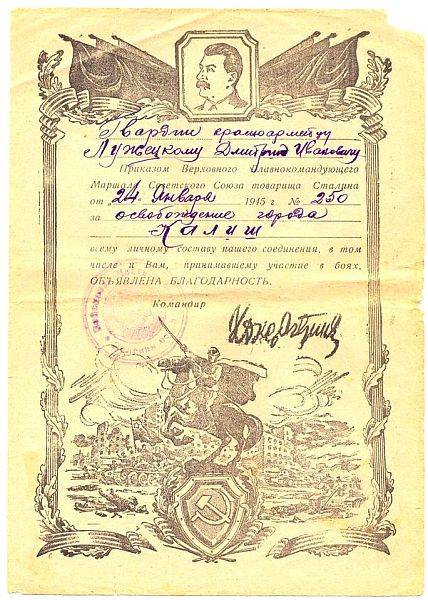 Гвардии красноармейцу
Лужецкому Дмитрию Ивановичу
Приказом Верховного Главнокомандующего
Маршала Советского Союза товарища Сталина
от „24" Января 1945 г. № 250
за освобождение города
Калиш
всему личному составу нашего соединения, в том
числе и Вам, принимавшему участие в боях,
ОБЪЯВЛЕНА БЛАГОДАРНОСТЬ.
Командир